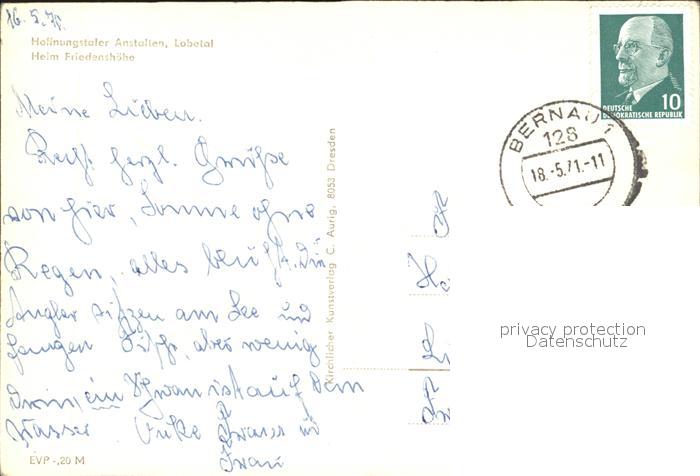 16.5.71.
Hoffnungstaler Anstalten, Lobetal
Heim Friedenshöhe
Meine Lieben.
Recht herzl. Grüße
von hier, Sonne ohne
Regen, alles blüht. Die
Angler sitzen am See und
fangen Fische, aber wenig
drin, ein Schwan ist auf dem
Wasser. Onkel
EVP -,20 M
Kirchlicher Kunstverlag C. Aurig, 8053 Dresden
DEUTSCHE
DEMOKRATISCHE REPUBLIK
10
BERNAU 1
128
18.-5.71.-11
privacy protection
Datenschutz